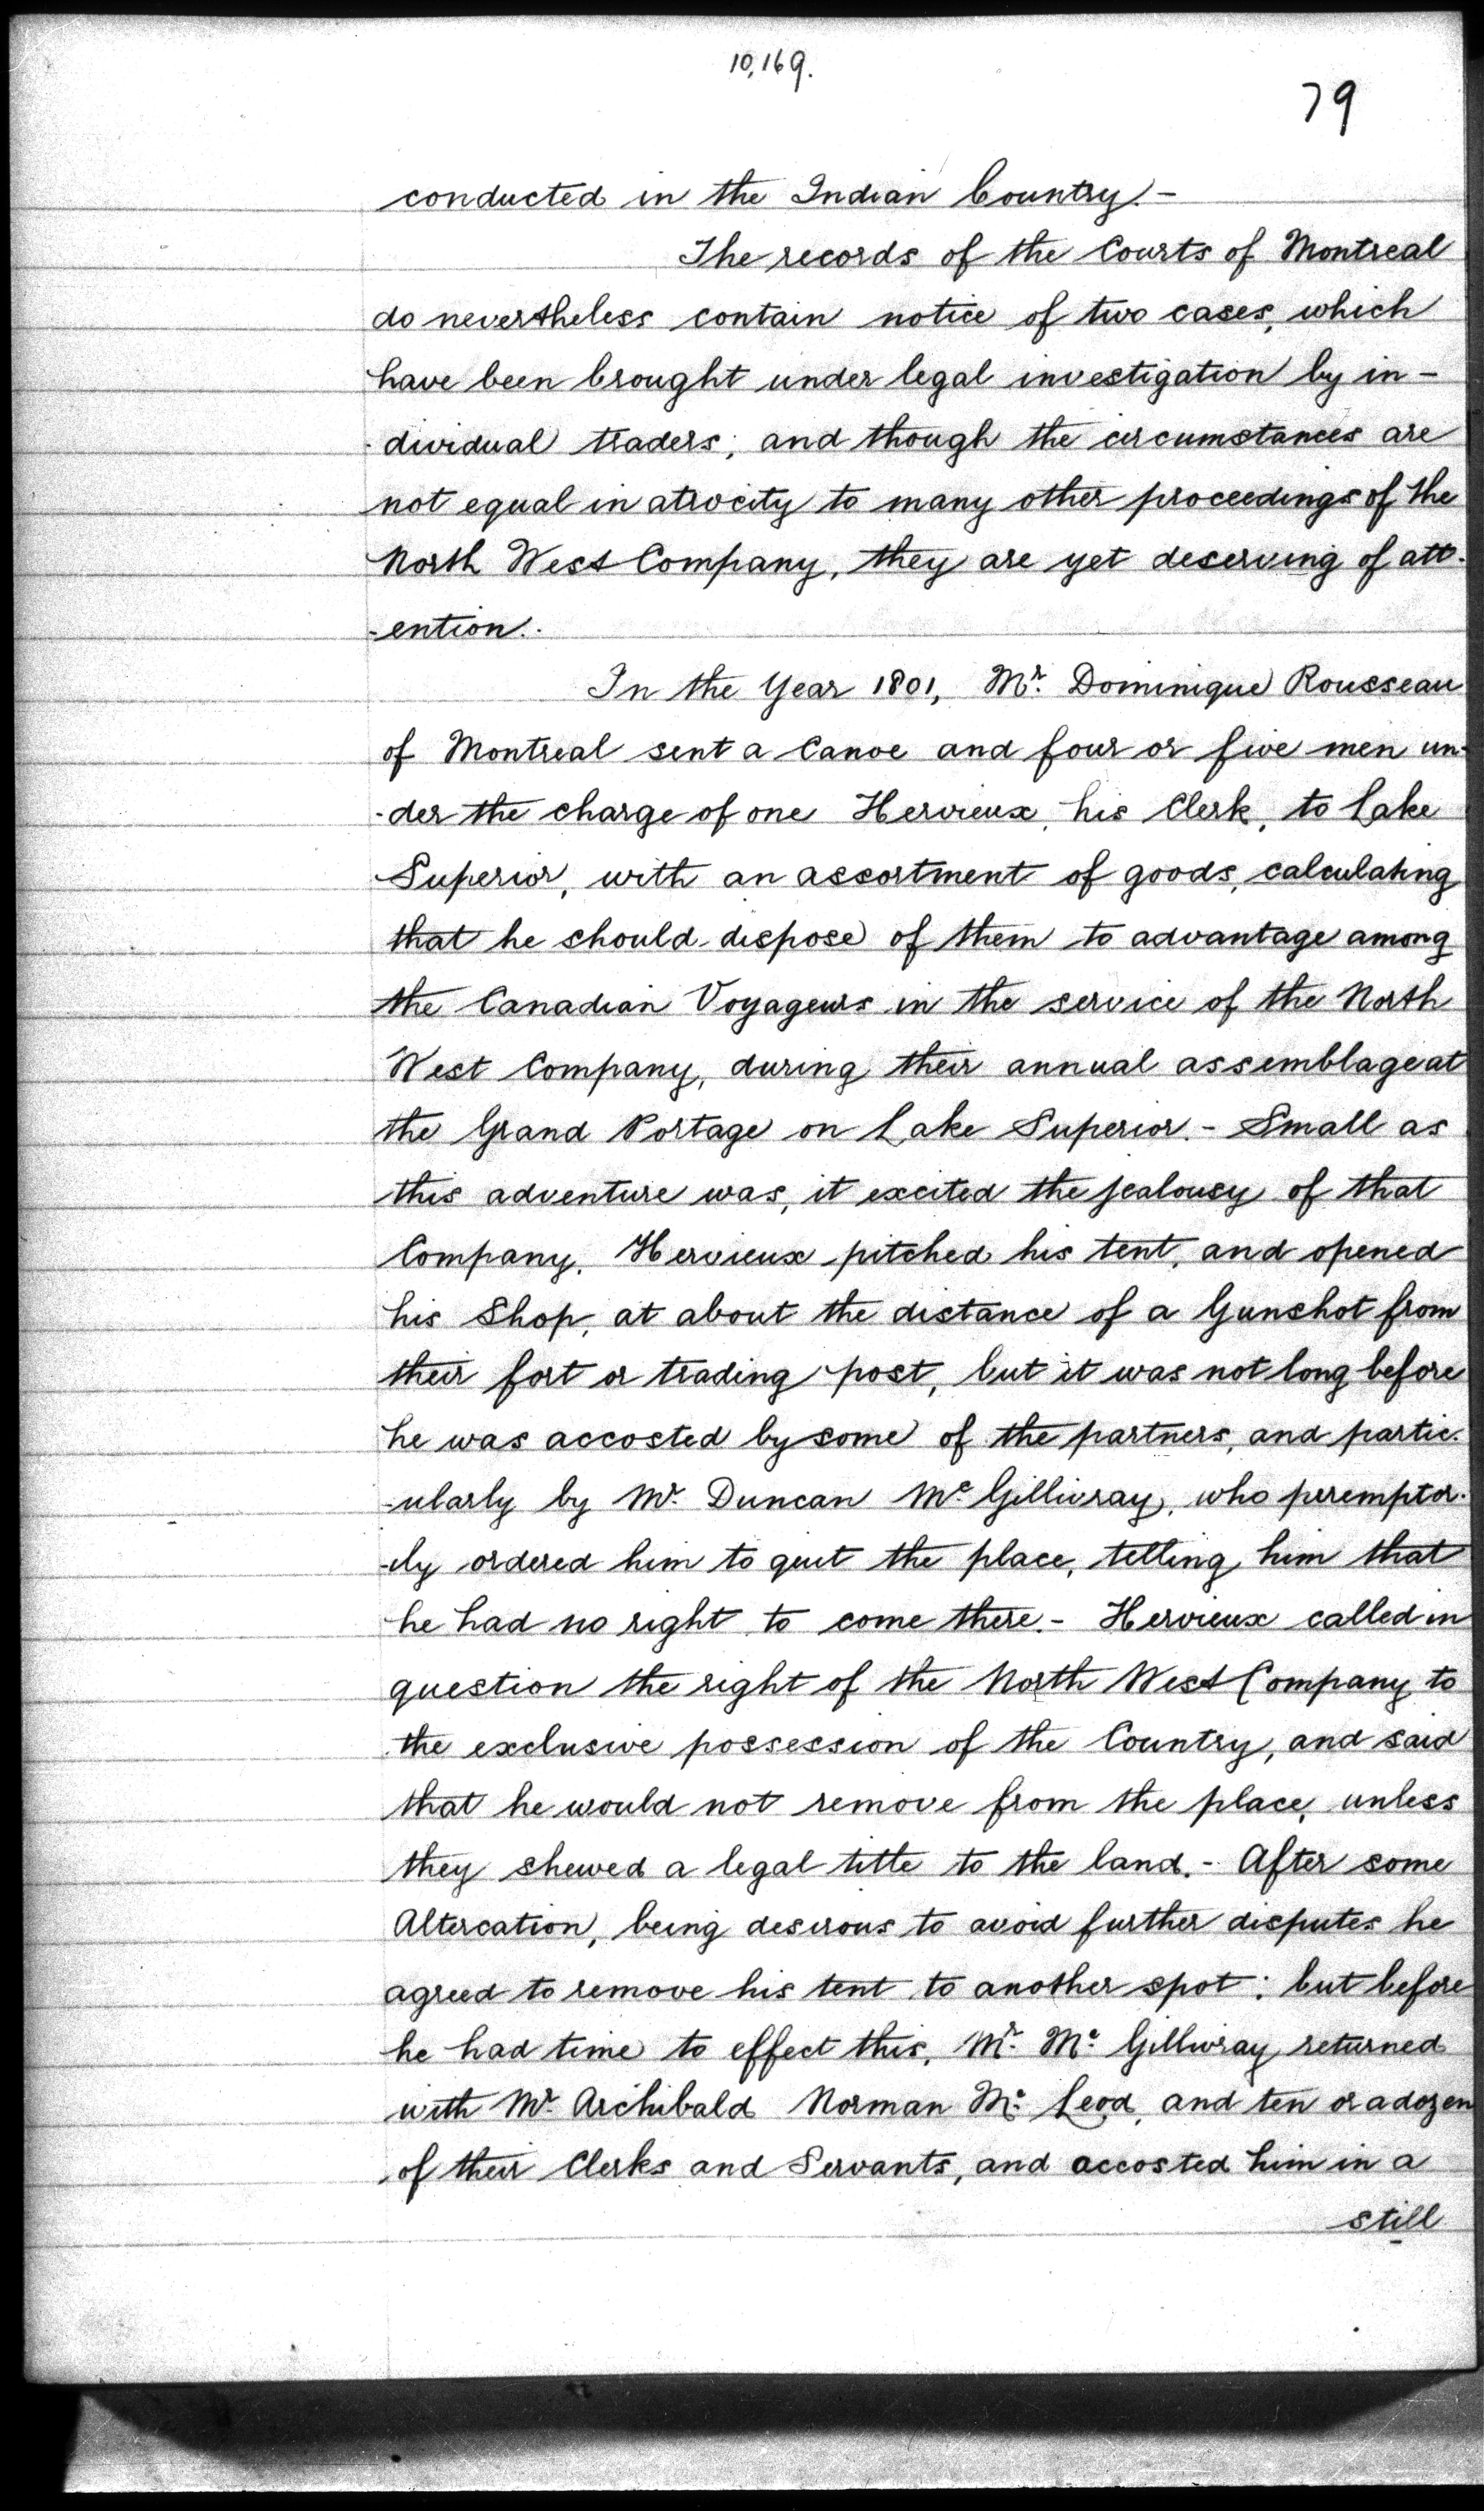 10,169.
79
conducted in the Indian Country.-
The records of the Courts of Montreal
do nevertheless contain notice of two cases, which
have been brought under legal investigation by in-
-dividual traders; and though the circumstances are
not equal in atrocity to many other proceedings of the
North West Company, they are yet deserving of att-
-ention.
In the Year 1801, Mr. Dominique Rousseau
of Montreal sent a Canoe and four or five men un-
-der the charge of one Hervieux, his Clerk, to Lake
Superior, with an assortment of goods, calculating
that he should dispose of them to advantage among
the Canadian Voyageurs in the service of the North
West Company, during their annual assemblage at
the Grand Portage on Lake Superior.- Small as
this adventure was, it excited the jealousy of that
Company. Hervieux pitched his tent, and opened
his Shop, at about the distance of a Gunshot from
their fort or trading post, but it was not long before
he was accosted by some of the partners, and partic-
-ularly by Mr. Duncan Mc Gillivray, who peremptor-
-ily ordered him to quit the place, telling him that
he had no right to come there.- Hervieux called in
question the right of the North West Company to
the exclusive possession of the Country, and said
that he would not remove from the place, unless
they shewed a legal title to the land.- After some
Altercation, being desirous to avoid further disputes he
agreed to remove his tent to another spot: but before
he had time to effect this, Mr. Mc Gillivray returned
with Mr. Archibald Norman Mc Leod, and ten or a dozen
of their Clerks and Servants, and accosted him in a
still